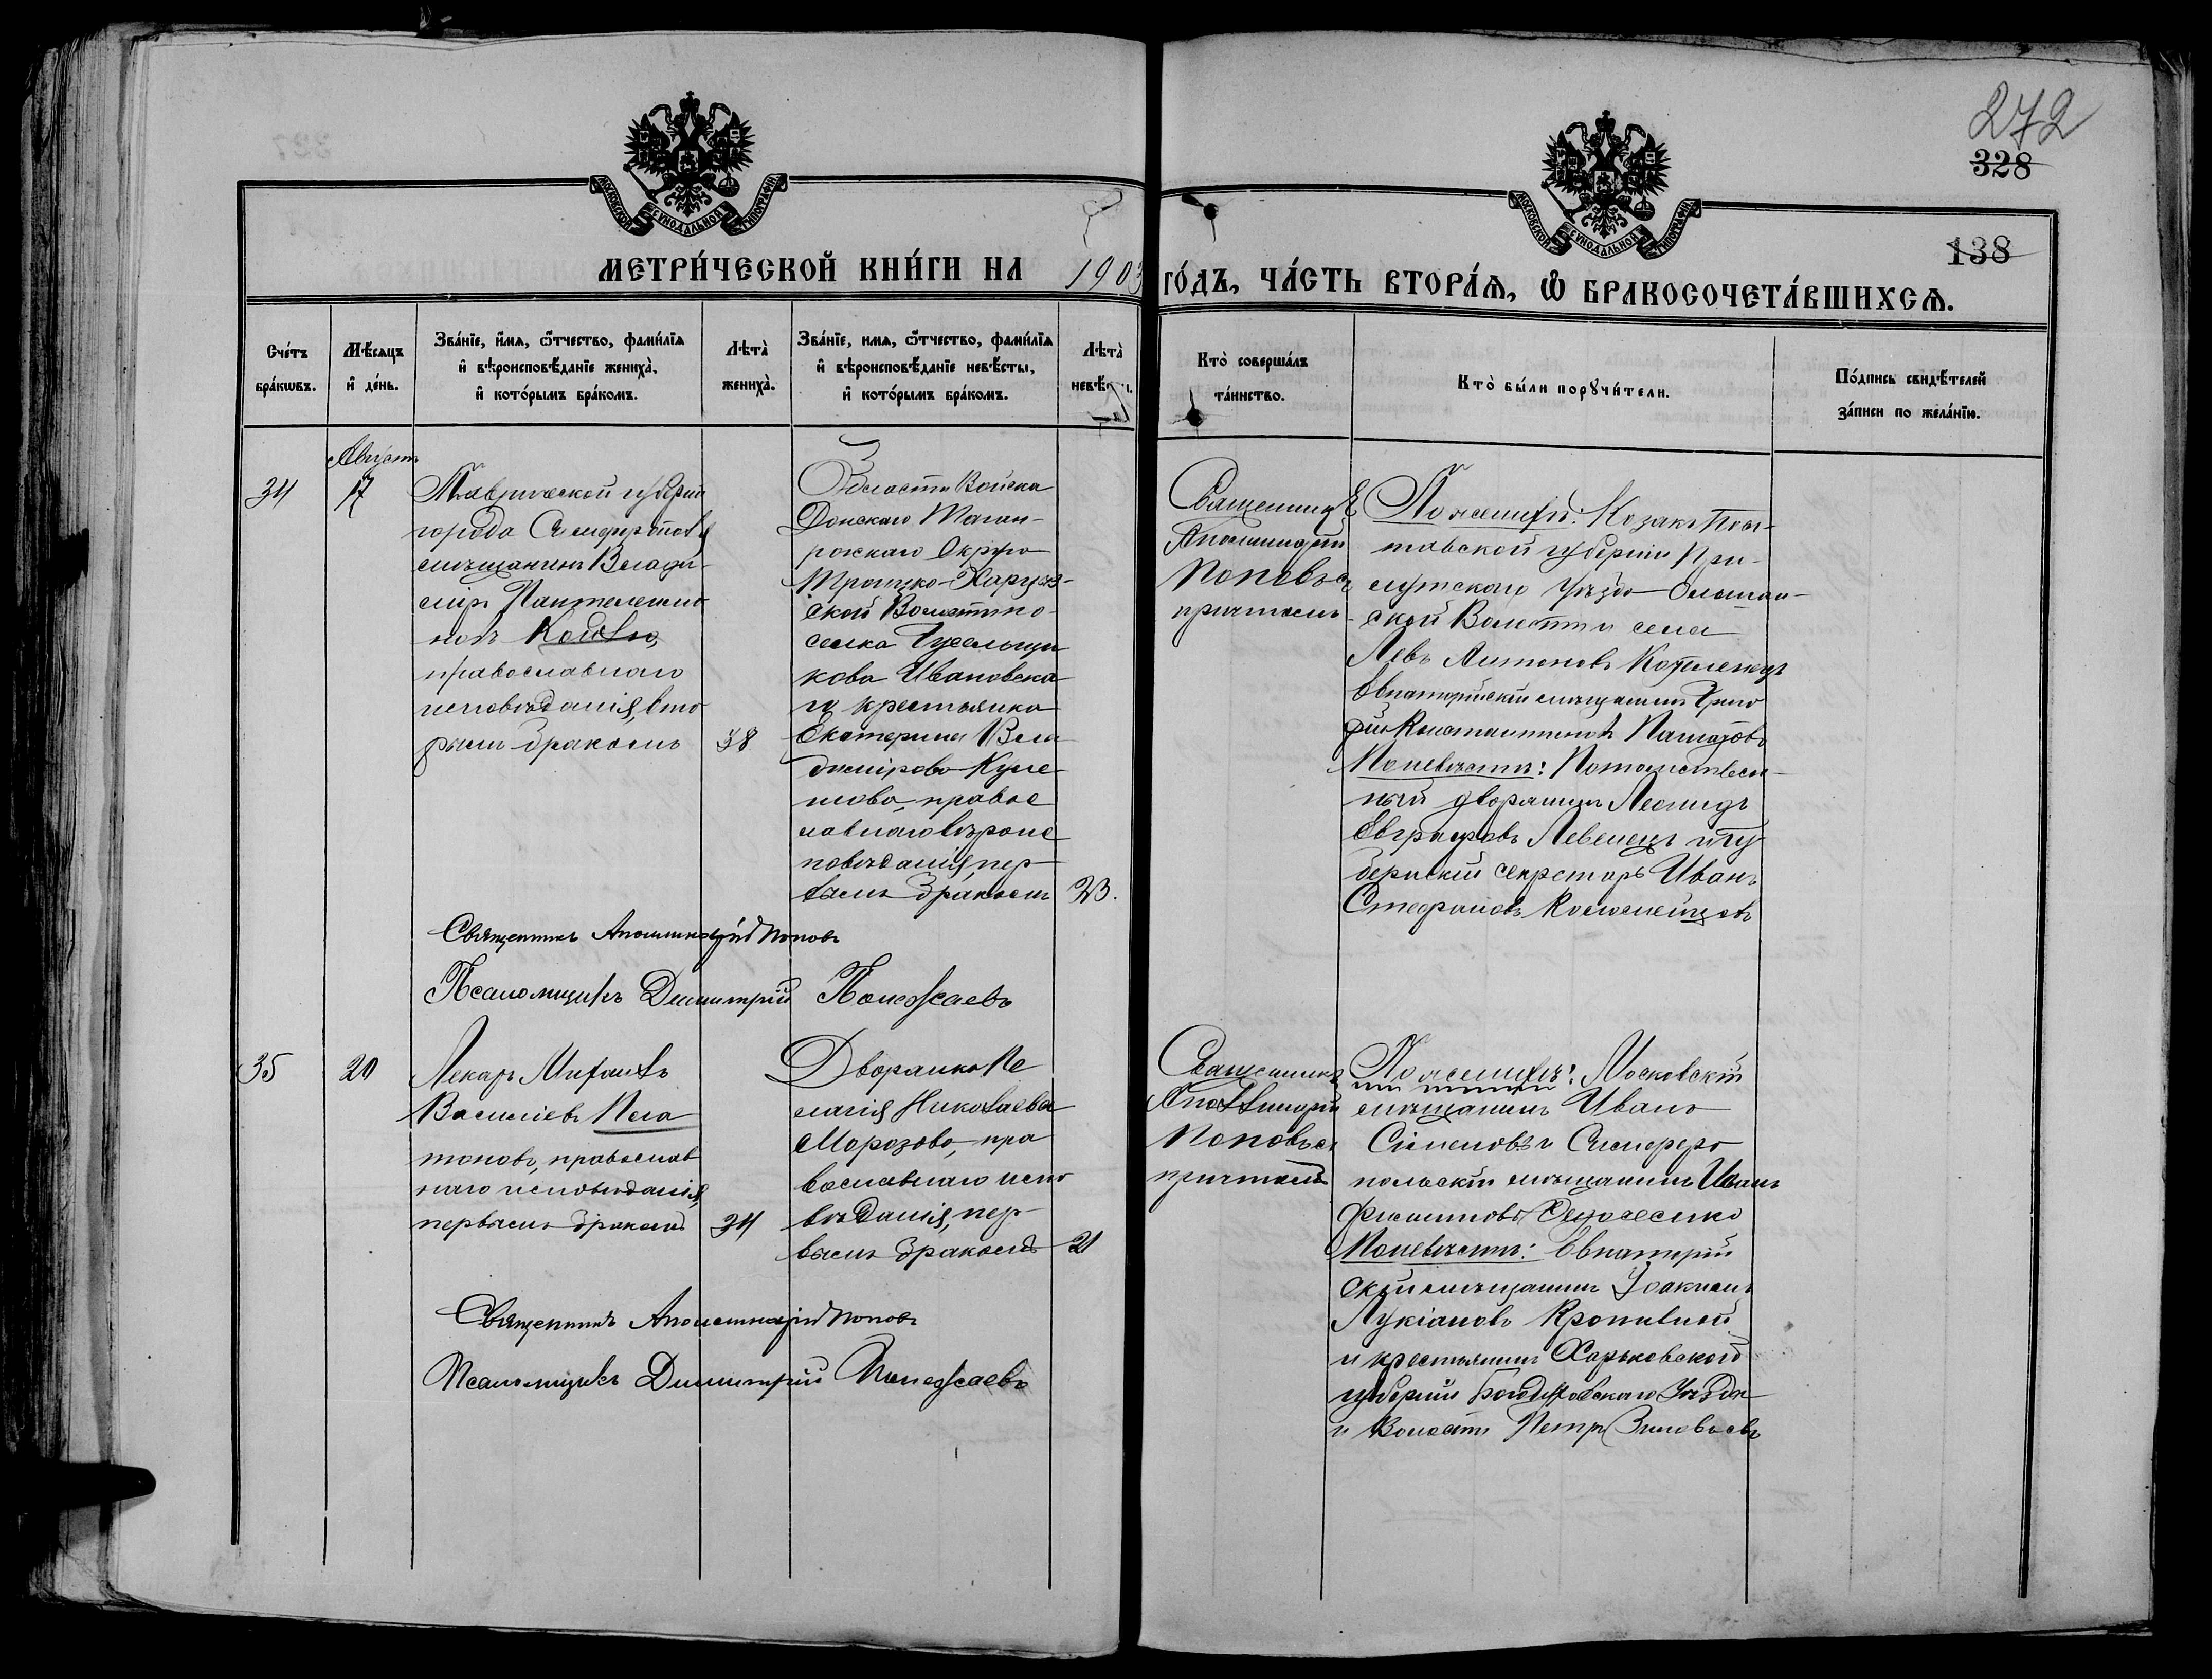 272
328
138
МОСКОВСКОЙ СѴНОДАЛЬНОЙ ТИПОГРАФІИ
МОСКОВСКОЙ СѴНОДАЛЬНОЙ ТИПОГРАФІИ
МЕТРИ́ЧЕСКОЙ КНИ́ГИ НА 1903 ГО́ДЪ, ЧА́СТЬ ВТОРА́Я, Ѽ БРАКОСОЧЕТА́ВШИХСЯ.
Сче́тъ
бра́кѡвъ.
Мѣ́сяцъ
и҆ де́нь.
Зва́нїе, и҆́мя, ѻ҆́тчество, фами́лїя
и҆ вѣроисповѣ́данїе жениха̀,
и҆ кото́рымъ бра́комъ.
Лѣта̀
жениха̀.
Зва́нїе, имя, ѻ҆́тчество, фами́лїя
и҆ вѣроисповѣ́данїе невѣ́сты,
и҆ кото́рымъ бра́комъ.
Лѣта̀
невѣ́сты.
Кто̀ соверша́лъ
та́инство.
Кто̀ бы́ли порꙋчи́тели.
По́дпись свидѣ́телей
за́писи по жела́нїю.
34
Августъ
17
Таврической губерніи
города Симферополя
мѣщанинъ Влади-
міръ Пантелеимо-
новъ
православнаго
исповѣданія, вто-
рымъ бракомъ
38
Области Войска
Донскаго Таган-
рожскаго Округа
Троицко-Харцыз-
ской Волости по-
селка Гусельщи-
кова Ивановска-
го крестьянка
Екатерина Вла-
димірова
православ-
наго вѣроис-
повѣданія, пер-
вымъ бракомъ
23.
Священникъ
Аполлинарій
Поповъ съ
причтомъ
По женихѣ: Козакъ Пол-
тавской губерніи При-
лукскаго Уѣзда
ской Волости села
Левъ Антоновъ
Евпаторійскій мѣщанинъ Григо-
рій Константиновъ
По невѣстѣ: Потомствен-
ный дворянинъ Леонидъ
Евграфовъ Левенецъ и гу-
бернскій секретарь Иванъ
Стефановъ Коломейцевъ
Священникъ Аполлинарій Поповъ
Псаломщикъ Димитрій Понежаевъ
35
20
Лекарь Михаилъ
Василіевъ Пла-
тоновъ, православ-
наго исповѣданія,
первымъ бракомъ
34
Дворянка Пе-
лагія Николаева
Морозова, пра-
вославнаго испо-
вѣданія, пер-
вымъ бракомъ
21
Священникъ
Аполлинарій
Поповъ съ
причтомъ
По женихѣ: Московскій
мѣщанинъ Иванъ
Симеоновъ и Симферо-
польскій мѣщанинъ Иванъ
Филипповъ
По невѣстѣ: Евпаторій-
скій мѣщанинъ Іоакимъ
Лукіановъ Кропивной
и крестьянинъ Харьковской
губерніи Богодуховскаго Уѣзда
и Волости Петръ Зиновьевъ
Священникъ Аполлинарій Поповъ
Псаломщикъ Димитрій Понежаевъ